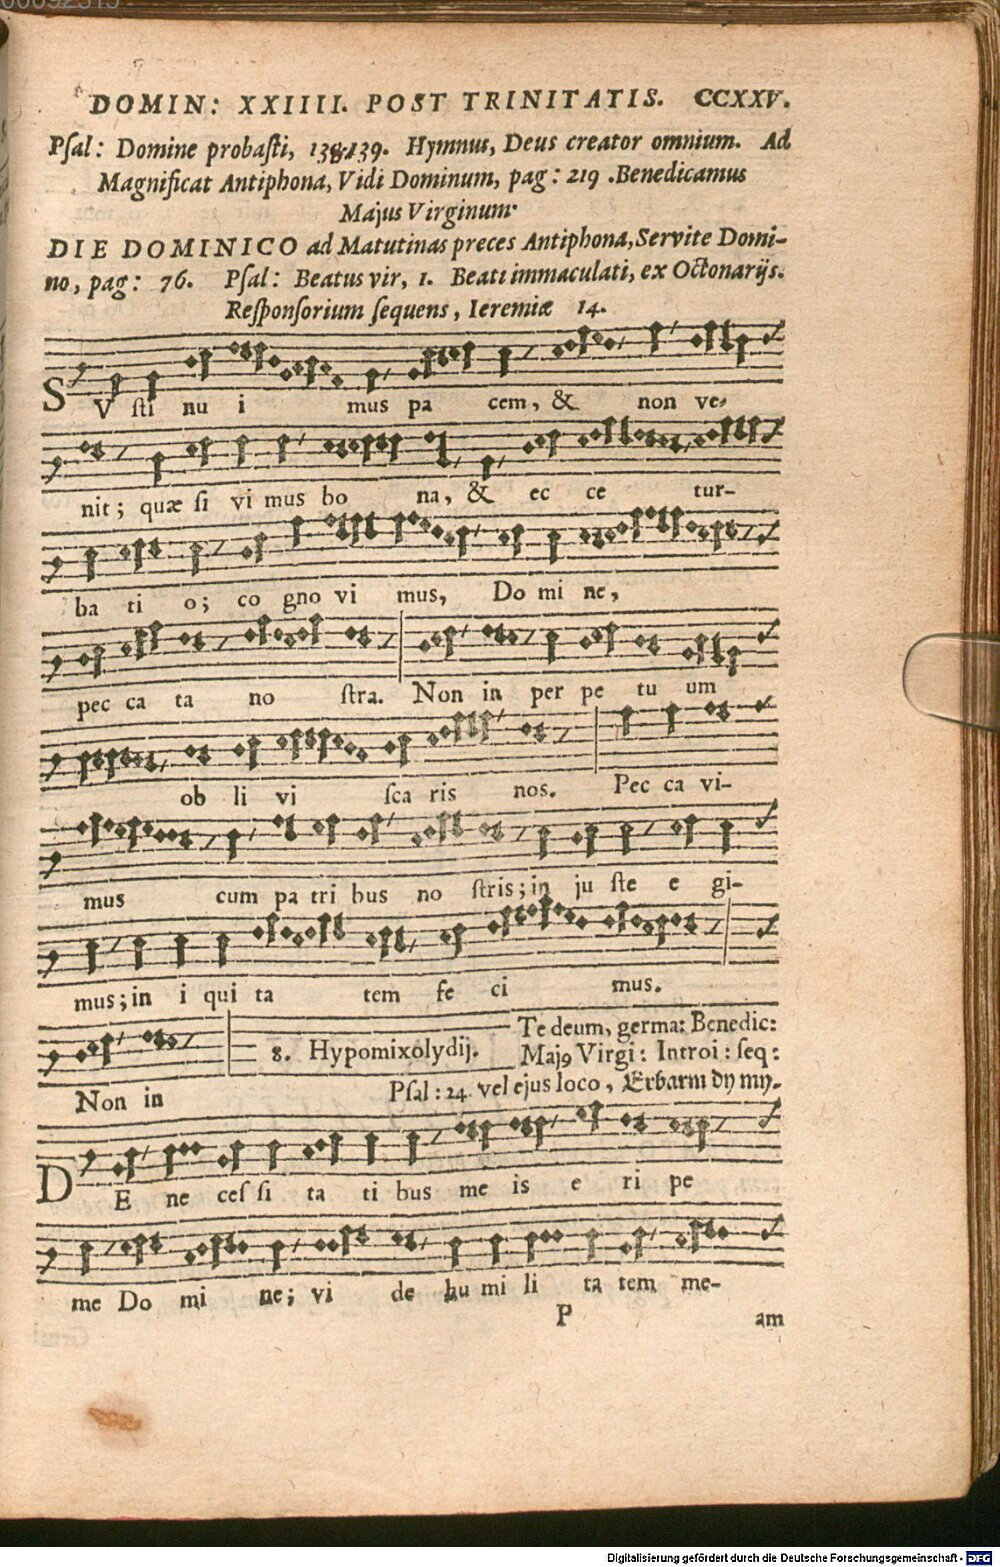 00092515
DOMIN: XXIIII. POST TRINITATIS. CCXXV.
Pſal: Domine probaſti, 138.139. Hymnus, Deus creator omnium. Ad
Magnificat Antiphona, Vidi Dominum, pag: 219 .Benedicamus
Majus Virginum.
DIE DOMINICO ad Matutinas preces Antiphona, Servite Domi-
no, pag: 76. Pſal: Beatus vir, 1. Beati immaculati, ex Octonarijs.
Reſponſorium ſequens, Ieremiæ 14.
SV ſti nu i mus pa cem, & non ve-
nit; quæ ſi vi mus bo na, & ec ce tur-
ba ti o; co gno vi mus, Do mi ne,
pec ca ta no ſtra. Non in per pe tu um
ob li vi ſca ris nos. Pec ca vi-
mus cum pa tri bus no ſtris; in ju ſte e gi-
mus; in i qui ta tem fe ci mus.
8. Hypomixolydij. Te deum, germa: Benedic:
Maj9 Virgi: Introi: ſeq:
Non in Pſal: 24. vel ejus loco, Erbarm dy my.
DE ne ceſ ſi ta ti bus me is e ri pe
me Do mi ne; vi de hu mi li ta tem me-
P am
Digitalisierung gefördert durch die Deutsche Forschungsgemeinschaft - DFG